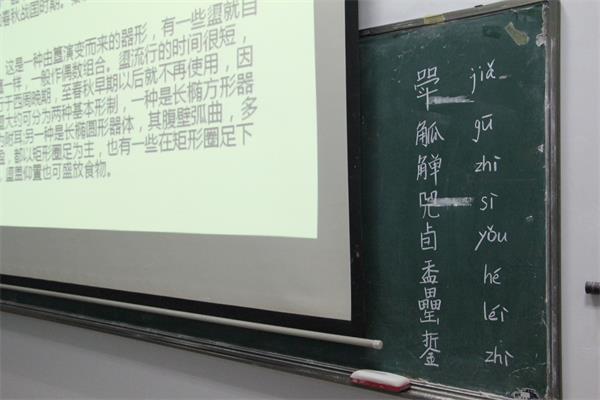 春秋战国时期。
这是一种由簋演变而来的器形，有一些盨就自
一样，一般作偶数组合。盨流行的时间很短，
于西周晚期，至春秋早期以后就不再使用，因
大约可分为两种基本形制，一种是长椭方形器
附耳另一种是长椭圆形器体，其腹壁弧曲，多
，都以矩形圈足为主，也有一些在矩形圈足下
，盨盖仰置也可盛放食物。
斝 jiǎ
觚 gū
觯 zhì
兕 sì
卣 yǒu
盉 hé
罍 léi
zhì